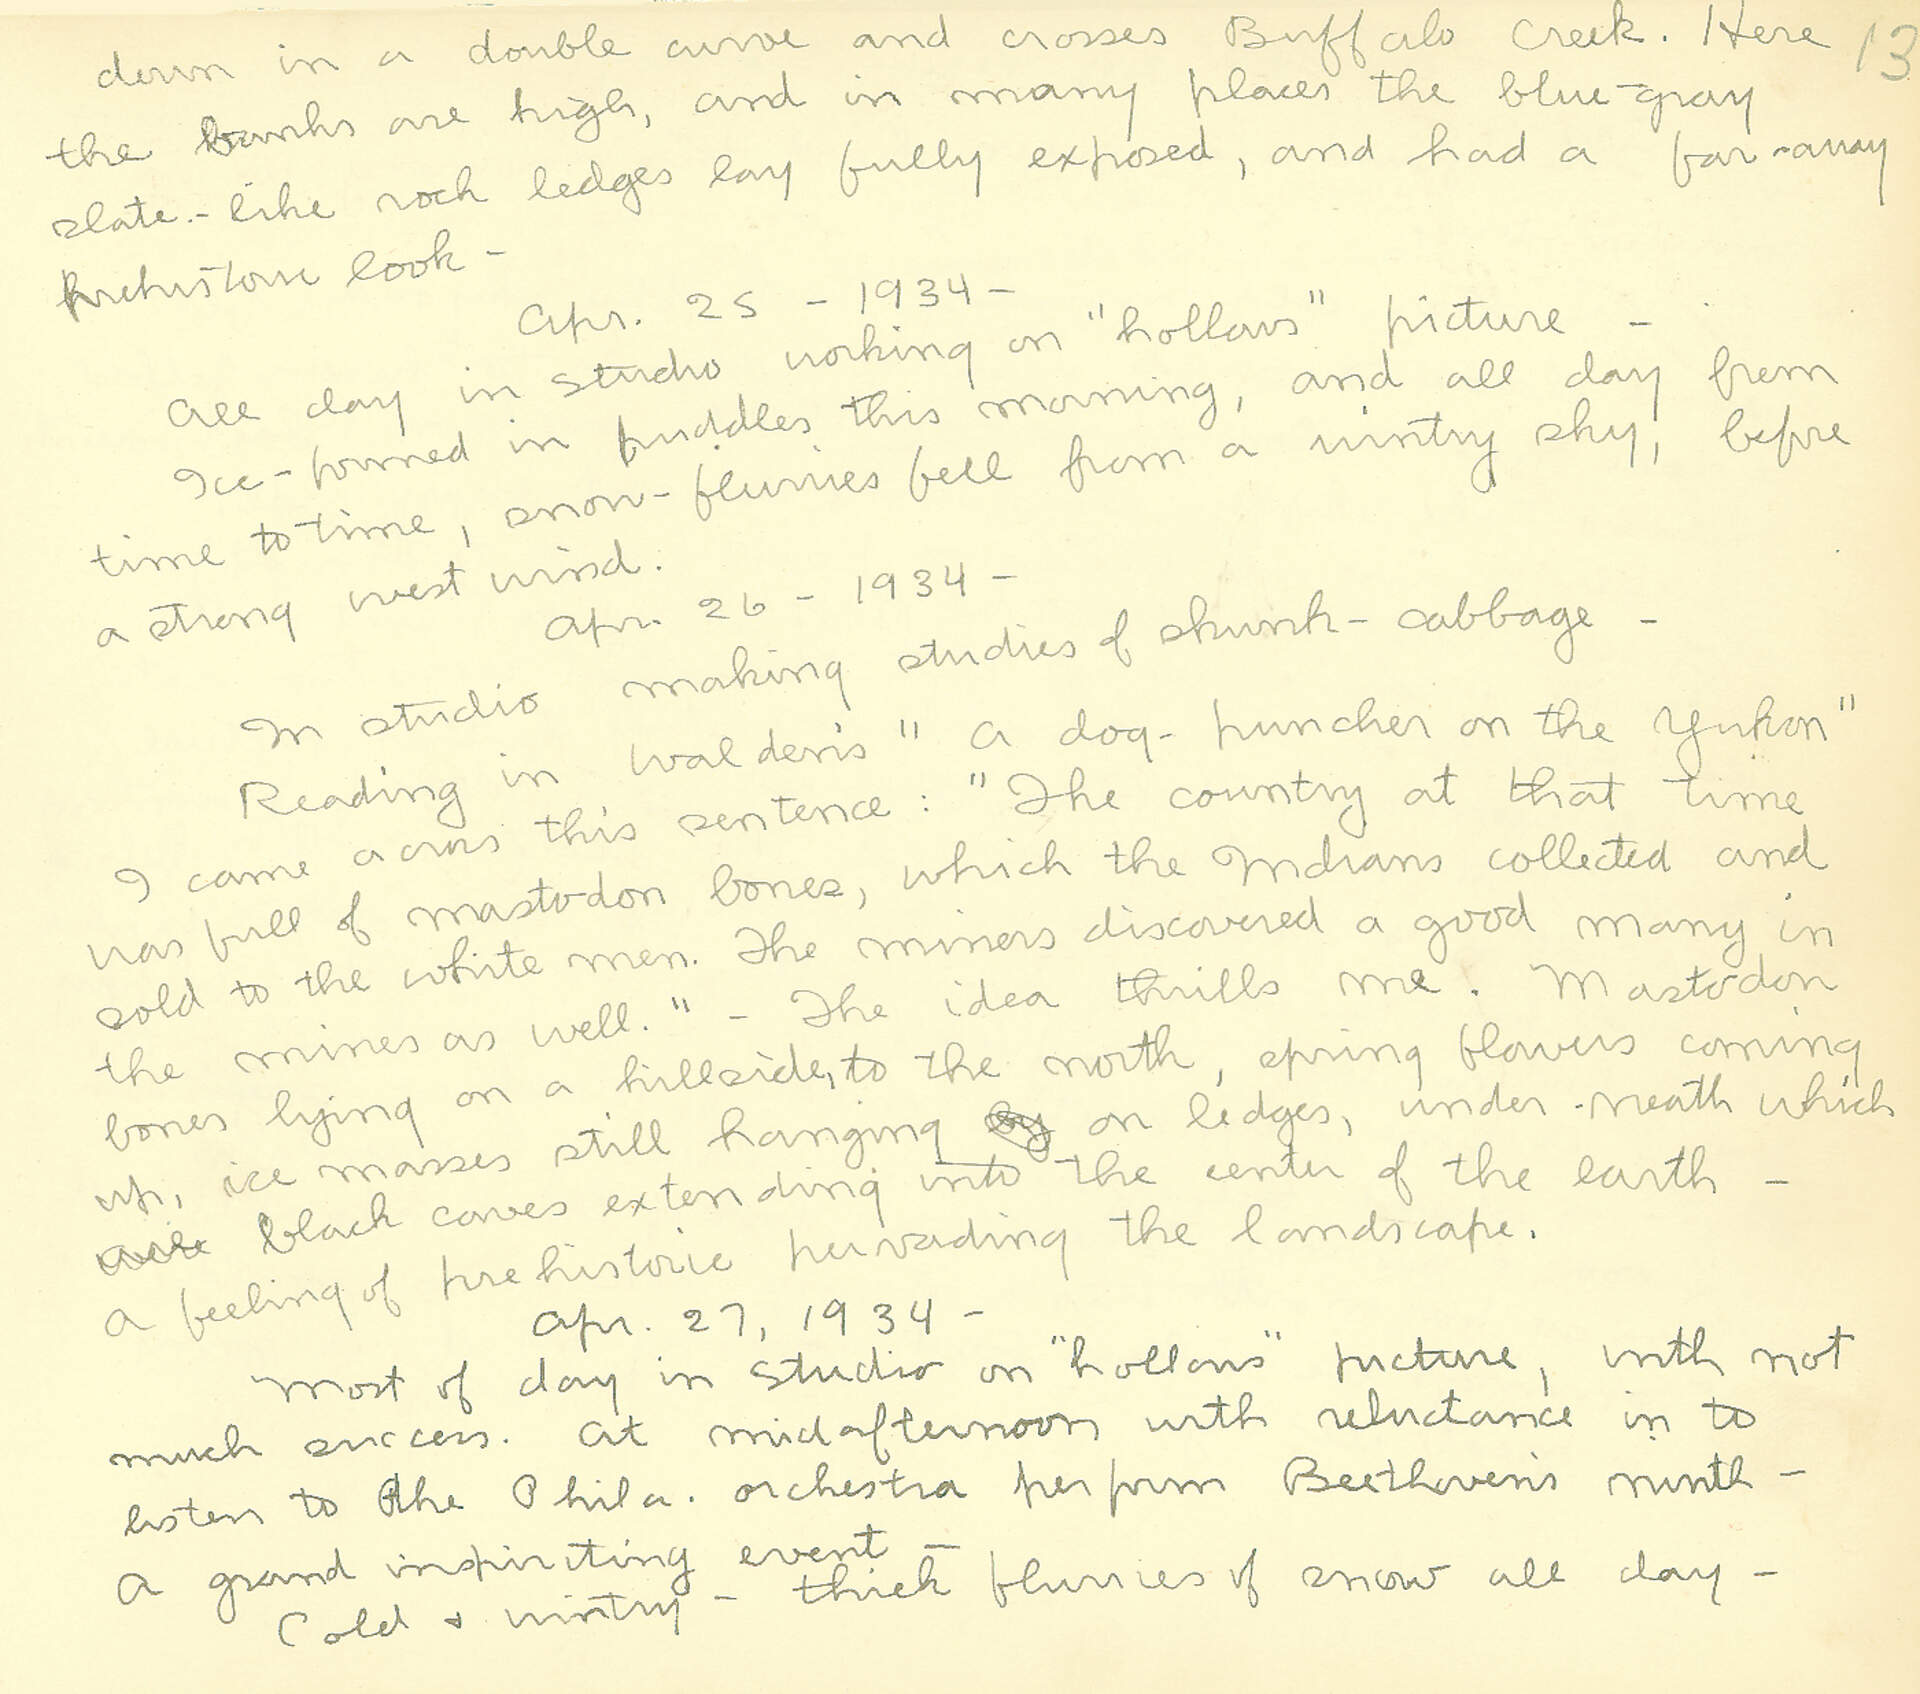 down in a double curve and crosses Buffalo Creek. Here 13
the banks are high, and in many places the blue-gray
slate-like rock ledges lay fully exposed, and had a far-away
prehistoric look -
Apr. 25 - 1934 -
All day in studio working on "hollows" picture -
Ice-formed in puddles this morning, and all day from
time to time, snow-flurries fell from a wintry sky, before
a strong west wind.
Apr. 26 - 1934 -
In studio making studies of skunk-cabbage -
Reading in Walden's "A dog-puncher on the Yukon"
I came across this sentence: "The country at that time
was full of mastodon bones, which the Indians collected and
sold to the white men. The miners discovered a good many in
the mines as well." - The idea thrills me. Mastodon
bones lying on a hillside, to the north, spring flowers coming
up, ice masses still hanging by on ledges, under-neath which
were black caves extending into the center of the earth -
a feeling of prehistoric pervading the landscape.
Apr. 27, 1934 -
Most of day in studio on "hollows" picture, with not
much success. At midafternoon with reluctance in to
listen to the Phila. orchestra perform Beethoven's ninth -
A grand inspiriting event -
Cold & wintry - thick flurries of snow all day -